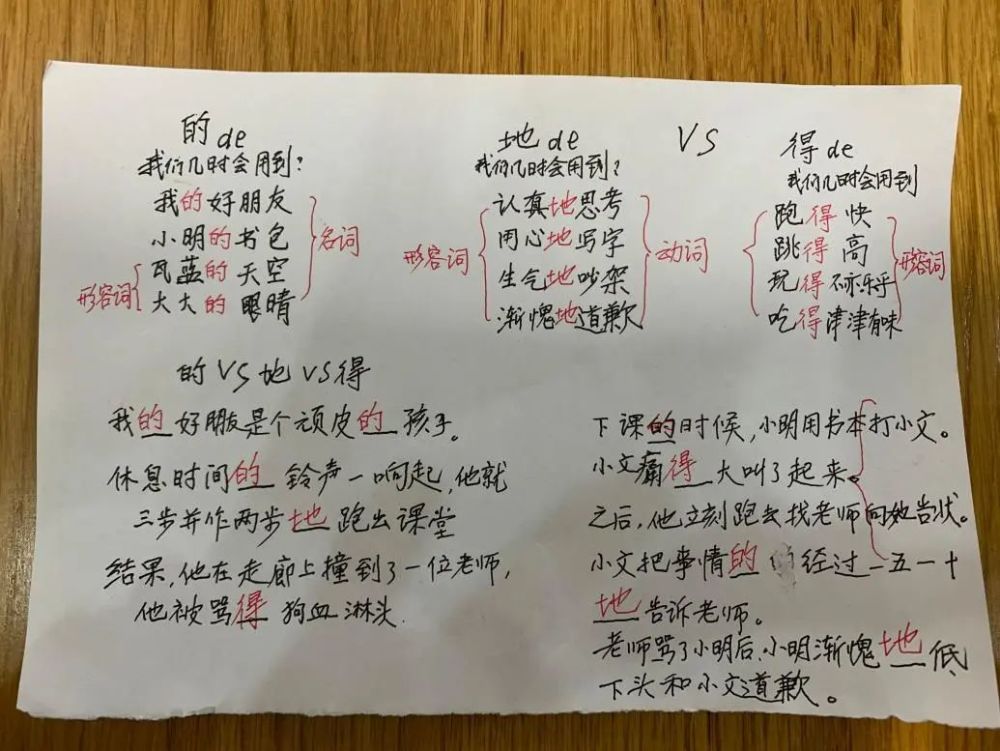 的 de
我们几时会用到?
我的好朋友
小明的书包
瓦蓝的天空
大大的眼睛
形容词
名词
地 de
我们几时会用到?
认真地思考
用心地写字
生气地吵架
渐愧地道歉
形容词
动词
VS
得 de
我们几时会用到
跑得快
跳得高
玩得不亦乐乎
吃得津津有味
形容词
的 VS 地 VS 得
我的好朋友是个顽皮的孩子。
休息时间的铃声一响起,他就
三步并作两步地跑出课堂
结果,他在走廊上撞到了一位老师,
他被骂得狗血淋头.
下课的时候,小明用书本打小文。
小文痛得大叫了起来。
之后,他立刻跑去找老师向她告状。
小文把事情的经过一五一十
地告诉老师。
老师骂了小明后,小明渐愧地低
下头和小文道歉。